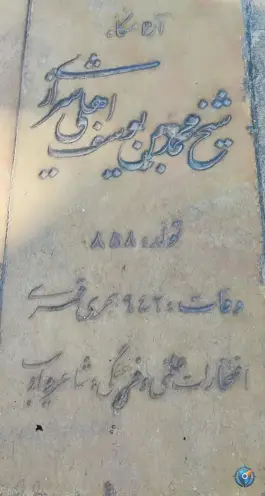 آرامگاه
شیخ محمد بن یوسف اهلی شیرازی
تولد: ۸۵۸
وفات: ۹۴۲ هجری قمری
افتخارات علمی و فرهنگی: شاعر و ادیب